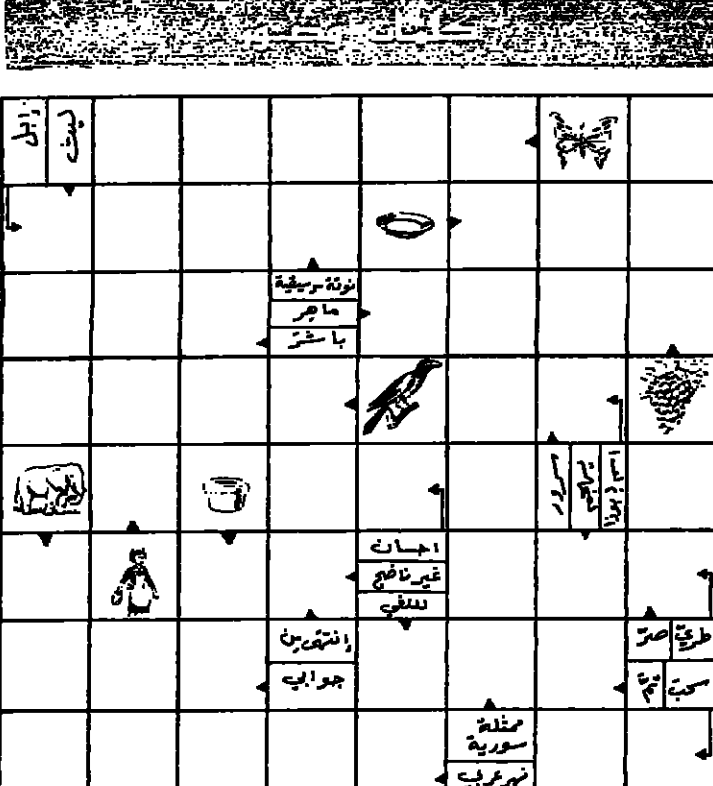 كلمات
ليث
نوتة موسيقية
ماهر
باشرَ
سرور
احسان
غير ناضج
للنفي
إنتهى من
جوابي
طريّ
ضرّ
سحبَ
تمّ
ممثلة
سورية
نهر عربي